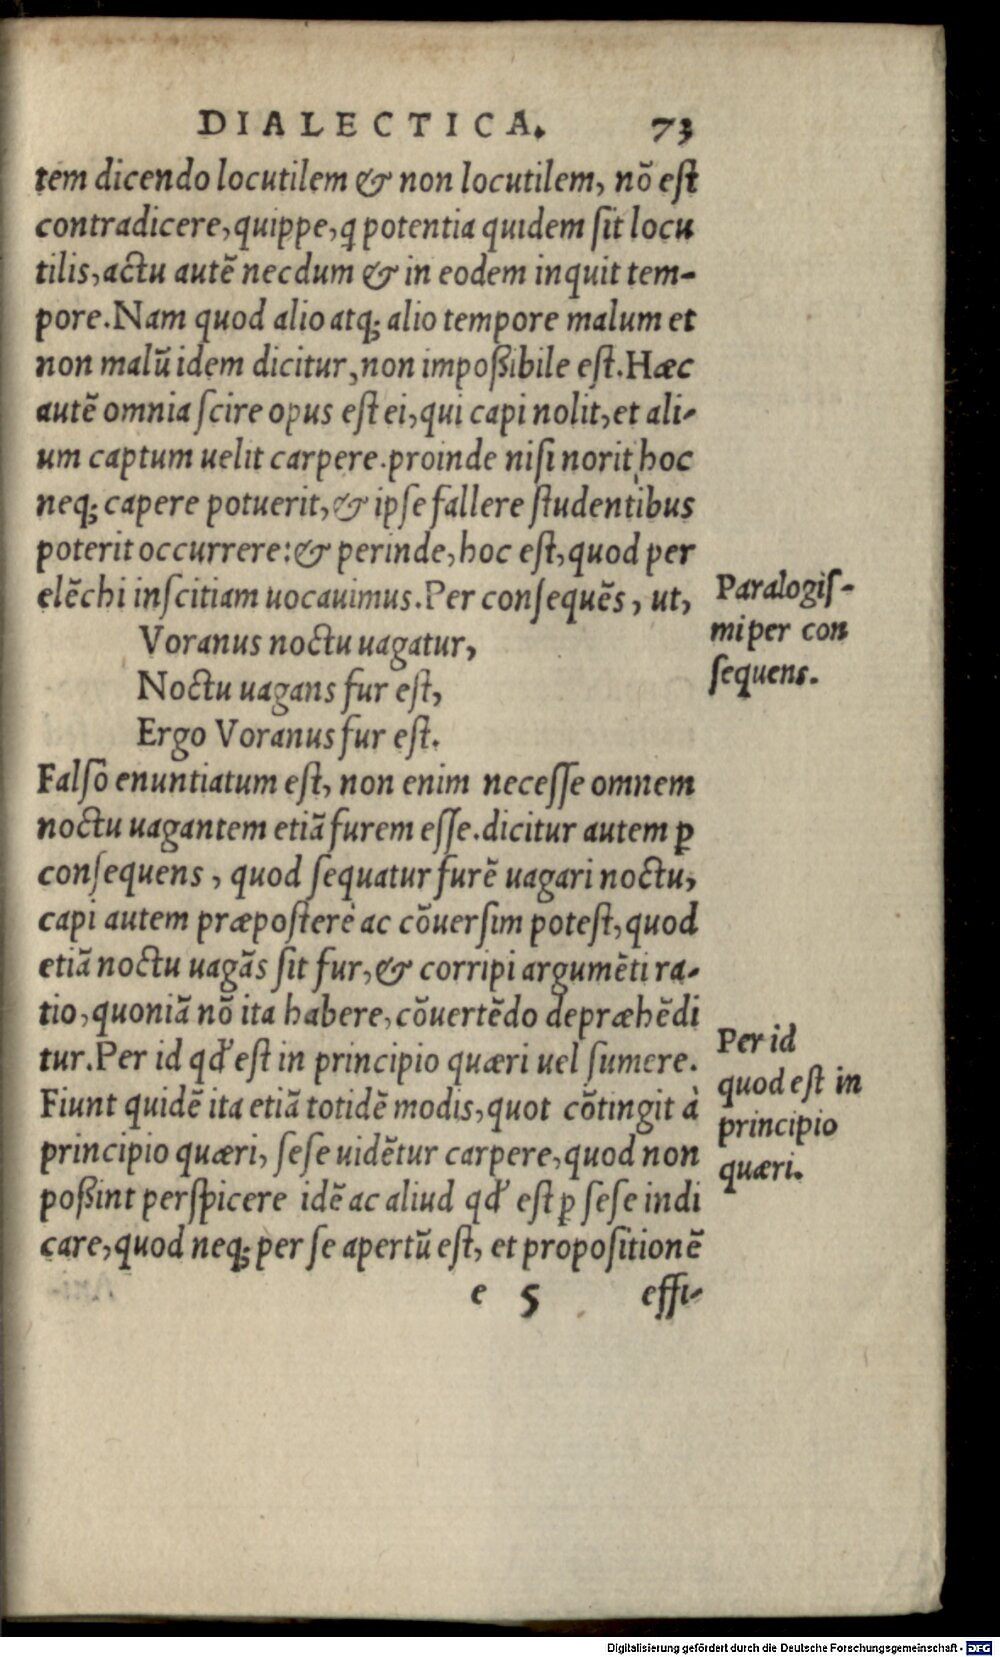 DIALECTICA. 73
tem dicendo locutilem & non locutilem, nõ est
contradicere, quippe, ꝗ potentia quidem sit locu
tilis, actu autẽ necdum & in eodem inquit tem-
pore. Nam quod alio atq; alio tempore malum et
non malũ idem dicitur, non impoßibile est. Hæc
autẽ omnia scire opus est ei, qui capi nolit, et ali-
um captum uelit carpere. proinde nisi norit hoc
neq; capere potuerit, & ipse fallere studentibus
poterit occurrere: & perinde, hoc est, quod per
elẽchi inscitiam uocauimus. Per consequẽs, ut,
Paralogis-
mi per con
sequens.
Voranus noctu uagatur,
Noctu uagans fur est,
Ergo Voranus fur est.
Falsò enuntiatum est, non enim necesse omnem
noctu uagantem etiã furem esse. dicitur autem ꝑ
consequens, quod sequatur furẽ uagari noctu,
capi autem præposterè ac cõuersim potest, quod
etiã noctu uagãs sit fur, & corripi argumẽti ra-
tio, quoniã nõ ita habere, cõuertẽdo depræhẽdi
tur. Per id qd' est in principio quæri uel sumere.
Per id
quod est in
principio
quæri.
Fiunt quidẽ ita etiã totidẽ modis, quot cõtingit à
principio quæri, sese uidẽtur carpere, quod non
poßint perspicere idẽ ac aliud qd' est ꝑ sese indi
care, quod neq; per se apertũ est, et propositionẽ
e 5 effi-
Digitalisierung gefördert durch die Deutsche Forschungsgemeinschaft - DFG